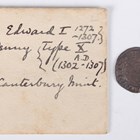 Edward I 1272
-1307
Penny { Type X
A.D
(1302-1307)
Canterbury Mint.